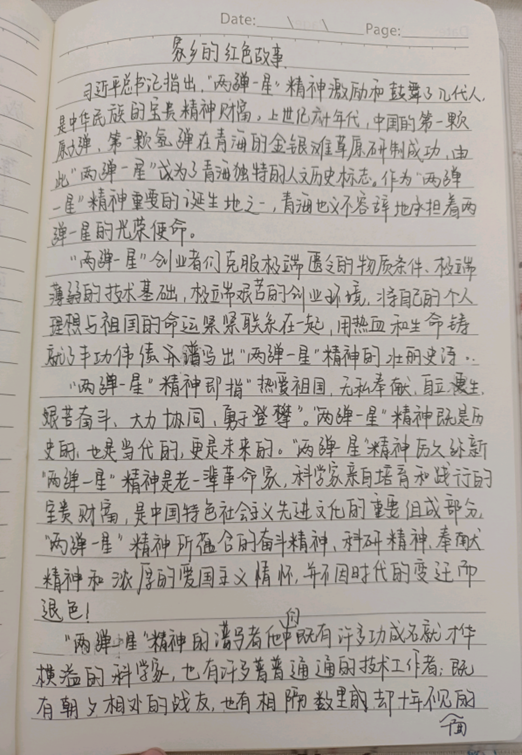 Date: \ \ Page:
家乡的红色故事
习近平总书记指出,"两弹一星"精神激励和鼓舞了几代人,
是中华民族的宝贵精神财富,上世纪六十年代,中国的第一颗
原子弹、第一颗氢弹在青海的金银滩草原研制成功,由
此"两弹一星"成为了青海独特的人文历史标志。作为"两弹
一星"精神重要的诞生地之一,青海也义不容辞地承担着两
弹一星的光荣使命。
"两弹一星"创业者们克服极端匮乏的物质条件、极端
薄弱的技术基础,极端艰苦的创业环境,将自己的个人
理想与祖国的命运紧紧联系在一起,用热血和生命铸
就了丰功伟绩并谱写出"两弹一星"精神的壮丽史诗..
"两弹一星"精神即指"热爱祖国、无私奉献、自立更生、
艰苦奋斗、大力协同、勇于登攀"。"两弹一星"精神既是历
史的,也是当代的,更是未来的。"两弹一星"精神历久弥新
"两弹一星"精神是老一辈革命家,科学家亲自培育和践行的
宝贵财富,是中国特色社会主义先进文化的重要组成部分,
"两弹一星"精神所蕴含的奋斗精神、科研精神、奉献
精神和浓厚的爱国主义情怀,并不因时代的变迁而
退色!
"两弹一星"精神的谱写者他们中既有许多功成名就才华
横溢的科学家,也有许多普普通通的技术工作者;既
有朝夕相处的战友,也有相隔数里或却十年不见的
面